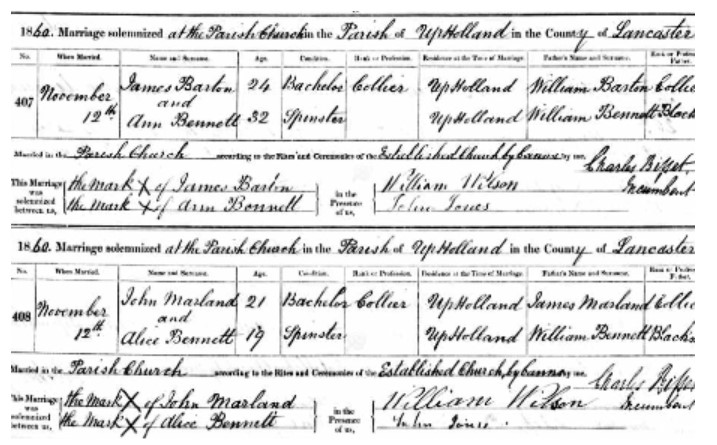 1860. Marriage solemnized at the Parish Church in the Parish of UpHolland in the County of Lancaster
No. When Married. Name and Surname. Age. Condition. Rank or Profession. Residence at the Time of Marriage. Father's Name and Surname. Rank or Profes Father.
407 November 12th James Barton and Ann Bennett 24 32 Bachelor Spinster Collier UpHolland UpHolland William Barton William Bennett Collie Black
Married in the Parish Church according to the Rites and Ceremonies of the Established Church by Banns by me,
Charles Bisset
Incumbent
This Marriage was solemnized between us, the mark X of James Barton in the Presence of us, William Wilson
the mark X of Ann Bennett John Jones
1860. Marriage solemnized at the Parish Church in the Parish of UpHolland in the County of Lancaster
No. When Married. Name and Surname. Age. Condition. Rank or Profession. Residence at the Time of Marriage. Father's Name and Surname. Rank or Profes Father.
408 November 12th John Marland and Alice Bennett 21 19 Bachelor Spinster Collier UpHolland UpHolland James Marland William Bennett Collie Blacks
Married in the Parish Church according to the Rites and Ceremonies of the Established Church, by Banns by me,
Charles Bisset
Incumbent
This Marriage was solemnized between us, the Mark X of John Marland in the Presence of us, William Wilson
the Mark X of Alice Bennett John Jones